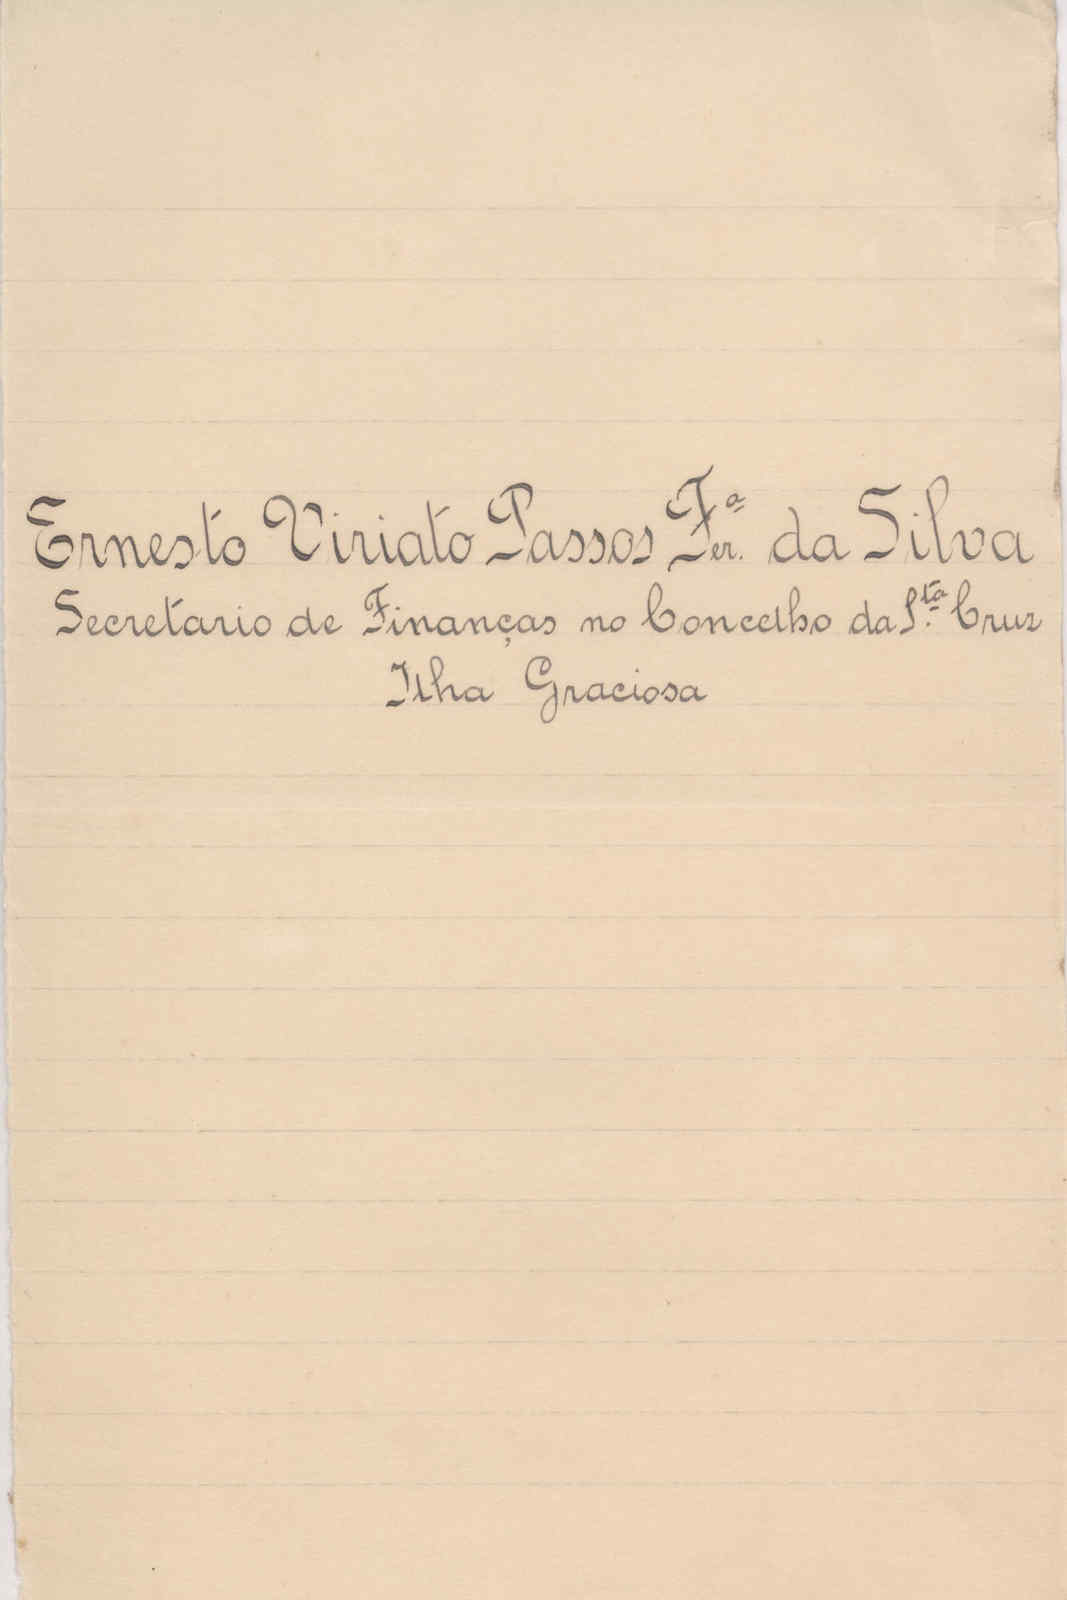 Ernesto Viriato Passos Fer.ª da Silva
Secretario de Finanças no Concelho da S.ta Cruz
Ilha Graciosa